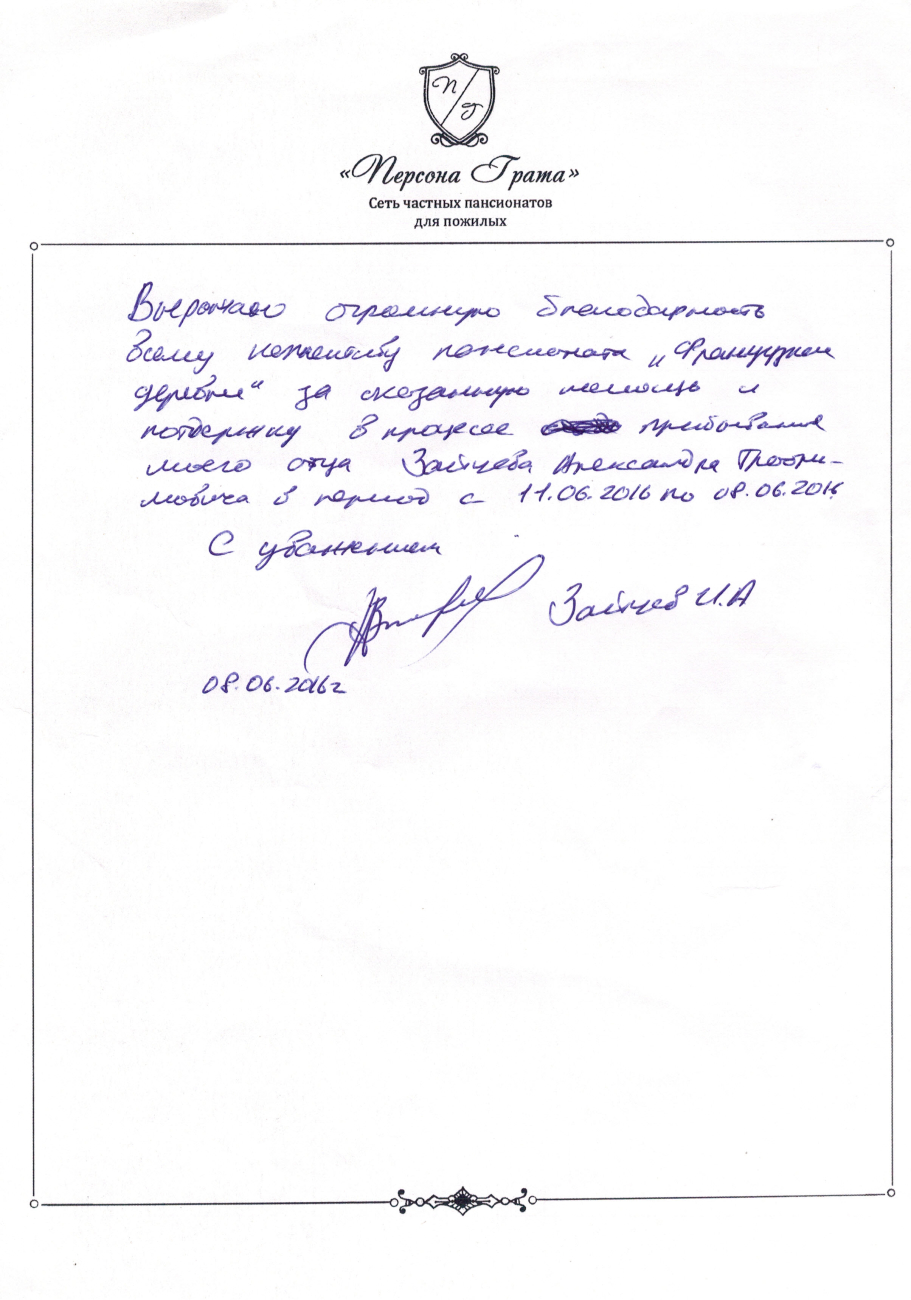 П/Г
«Персона Грата»
Сеть частных пансионатов
для пожилых
Выражаю огромную благодарность
всему коллективу пансионата „Француzкая
деревня“ за оказанную помощь и
поддержку в процессе прибывания
моего отца Зайцева Александра
мовича в период с 11.06.2016 по 08.06.2016
С уважением
Зайцев И.А
08.06.2016г